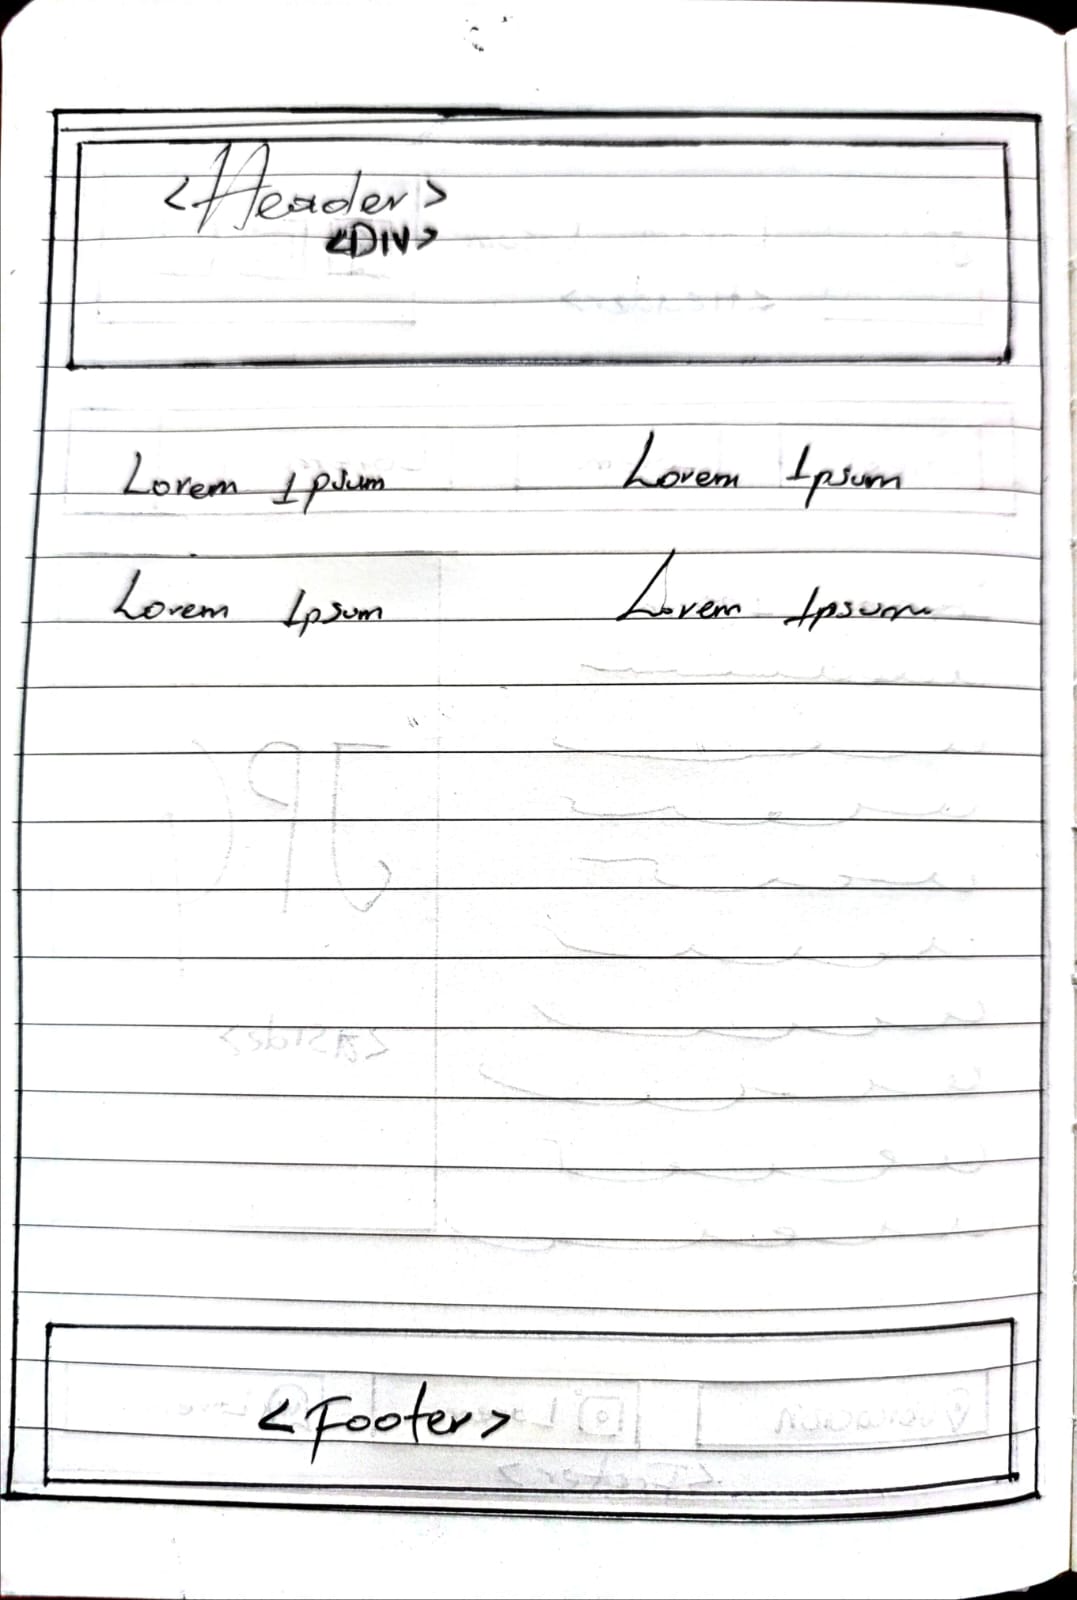 <Header>
<DIV>
Lorem Ipsum Lorem Ipsum
Lorem Ipsum Lorem Ipsum
<Footer>